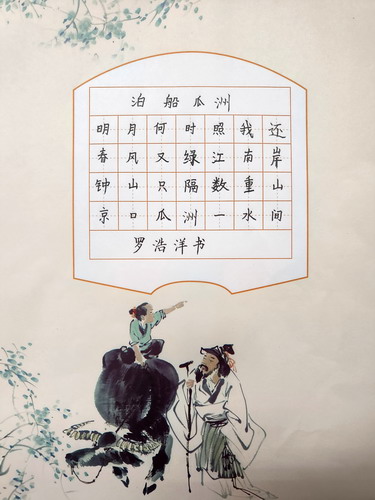 泊船瓜洲
明月何时照我还
春风又绿江南岸
钟山只隔数重山
京口瓜洲一水间
罗浩洋书